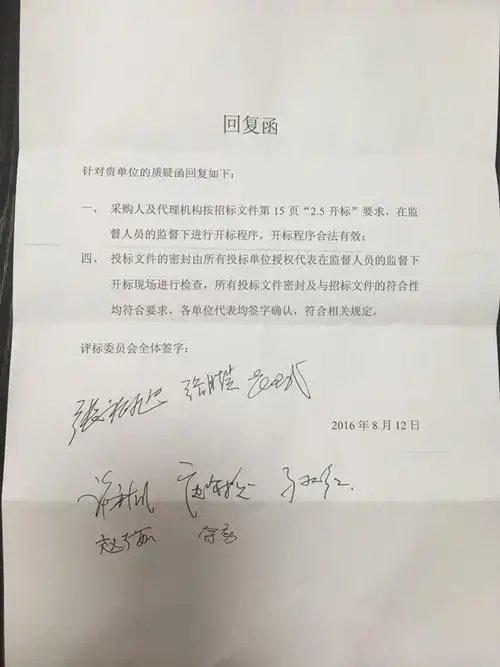 回复函
针对贵单位的质疑函回复如下：
一、 采购人及代理机构按招标文件第 15 页“2.5 开标”要求，在监
督人员的监督下进行开标程序，开标程序合法有效；
四、 投标文件的密封由所有投标单位授权代表在监督人员的监督下
开标现场进行检查，所有投标文件密封及与招标文件的符合性
均符合要求，各单位代表均签字确认，符合相关规定。
评标委员会全体签字：
2016 年 8 月 12 日